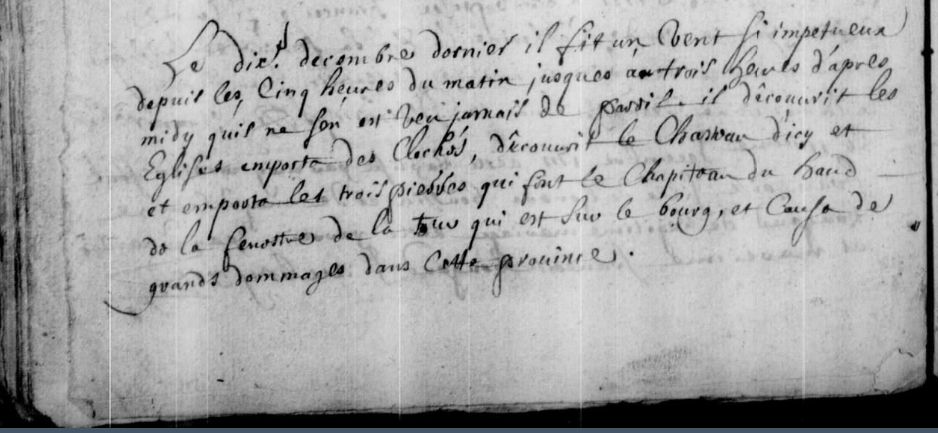 Le dix.e decembre dernier il fit un vent si impetueux
depuis les cinq heures du matin jusques au trois heures d'apres
midy quil ne son est veu jamais de pareil. il découvrit les
Eglises emporta des Clochés, découvrit le Chateau d'icy et
et emporta les trois pierres qui font le Chapiteau du haud
de la fenestre de la tour qui est sur le bourg, et causa de
grands dommages dans Cette province.